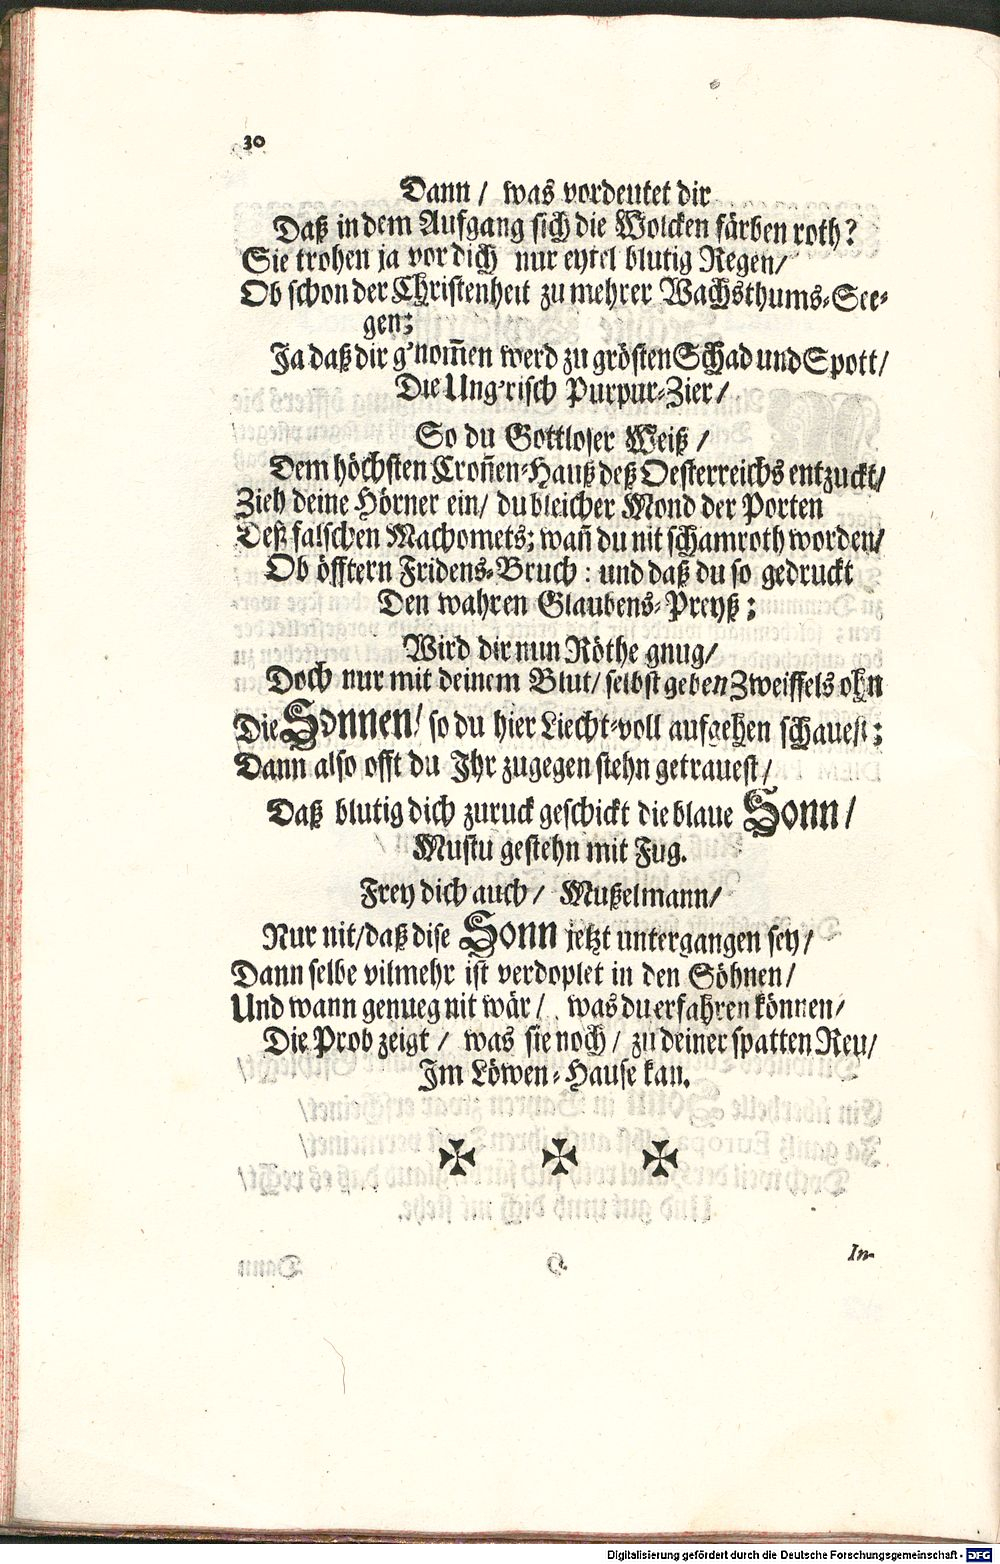 30
Dann / was vordeutet dir
Daß in dem Aufgang sich die Wolcken färben roth?
Sie trohen ja vor dich nur eytel blutig Regen/
Ob schon der Christenheit zu mehrer Wachsthums-See-
gen;
Ja daß dir g'nom̃en werd zu grösten Schad und Spott/
Die Ung'risch Purpur-Zier/
So du Gottloser Weiß /
Dem höchsten Cron̄en-Hauß deß Oesterreichs entzuckt/
Zieh deine Hörner ein/ du bleicher Mond der Porten
Deß falschen Machomets; wan̄ du nit schamroth worden/
Ob öfftern Fridens-Bruch : und daß du so gedruckt
Den wahren Glaubens-Preyß;
Wird dir nun Röthe gnug/
Doch nur mit deinem Blut/ selbst geben Zweiffels ohn
Die Sonnen/ so du hier Liecht-voll aufgehen schauest;
Dann also offt du Ihr zugegen stehn getrauest/
Daß blutig dich zuruck geschickt die blaue Sonn/
Mustu gestehn mit Fug.
Frey dich auch/ Mußelmann/
Nur nit/daß dise Sonn jetzt untergangen sey/
Dann selbe vilmehr ist verdoplet in den Söhnen/
Und wann genueg nit wär/ was du erfahren können/
Die Prob zeigt / was sie noch / zu deiner spatten Reu/
Im Löwen-Hause kan.
In-
Digitalisierung gefördert durch die Deutsche Forschungsgemeinschaft - DFG